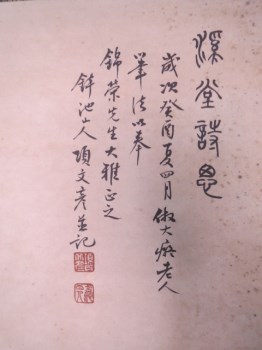 溪堂詩思
歲次癸酉夏四月倣大癡老人
筆法以奉
錦榮先生大雅正之
鉢池山人項文彥並記